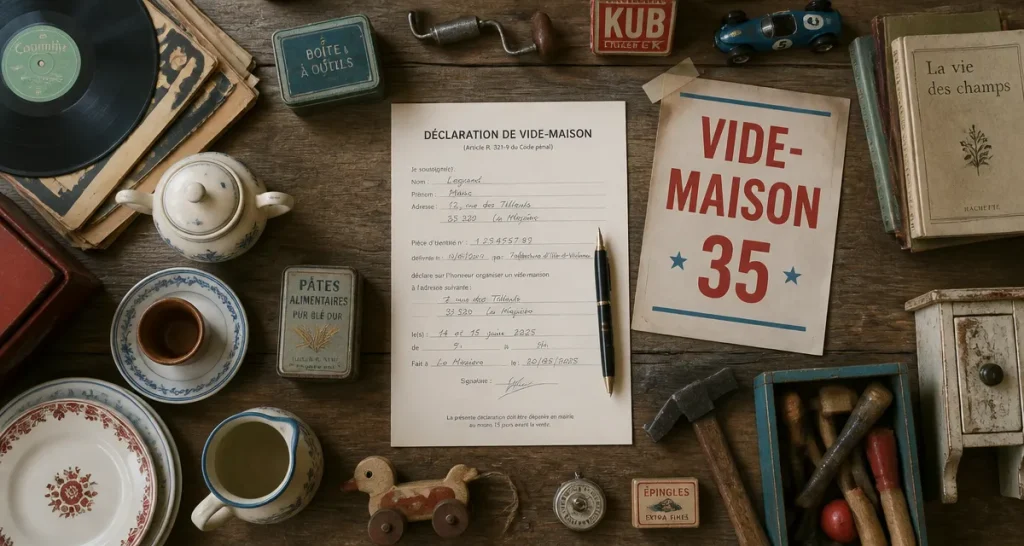 BOÎTE À
À OUTILS
KUB
5
La vie
des champs
HACHETTE
DÉCLARATION DE VIDE-MAISON
(Article R. 321-9 du Code pénal)
Je soussigné(e)
Nom :
Prénom :
Adresse : 12, rue des Tilleuls
35 220
Pièce d'identité n° : 1 234557 89
délivrée le : par :
déclare sur l'honneur organiser un vide-maison
à l'adresse suivante :
7 rue des Tilleuls
33 520
le(s) : 14 et 15 juin 2025
de 9 à
Fait à le : 20/05/2025
Signature :
La présente déclaration doit être déposée en mairie
au moins 15 jours avant la vente.
VIDE-
MAISON
35
PÂTES
ALIMENTAIRES
PUR BLÉ DUR
ÉPINGLES
EXTRA FINES